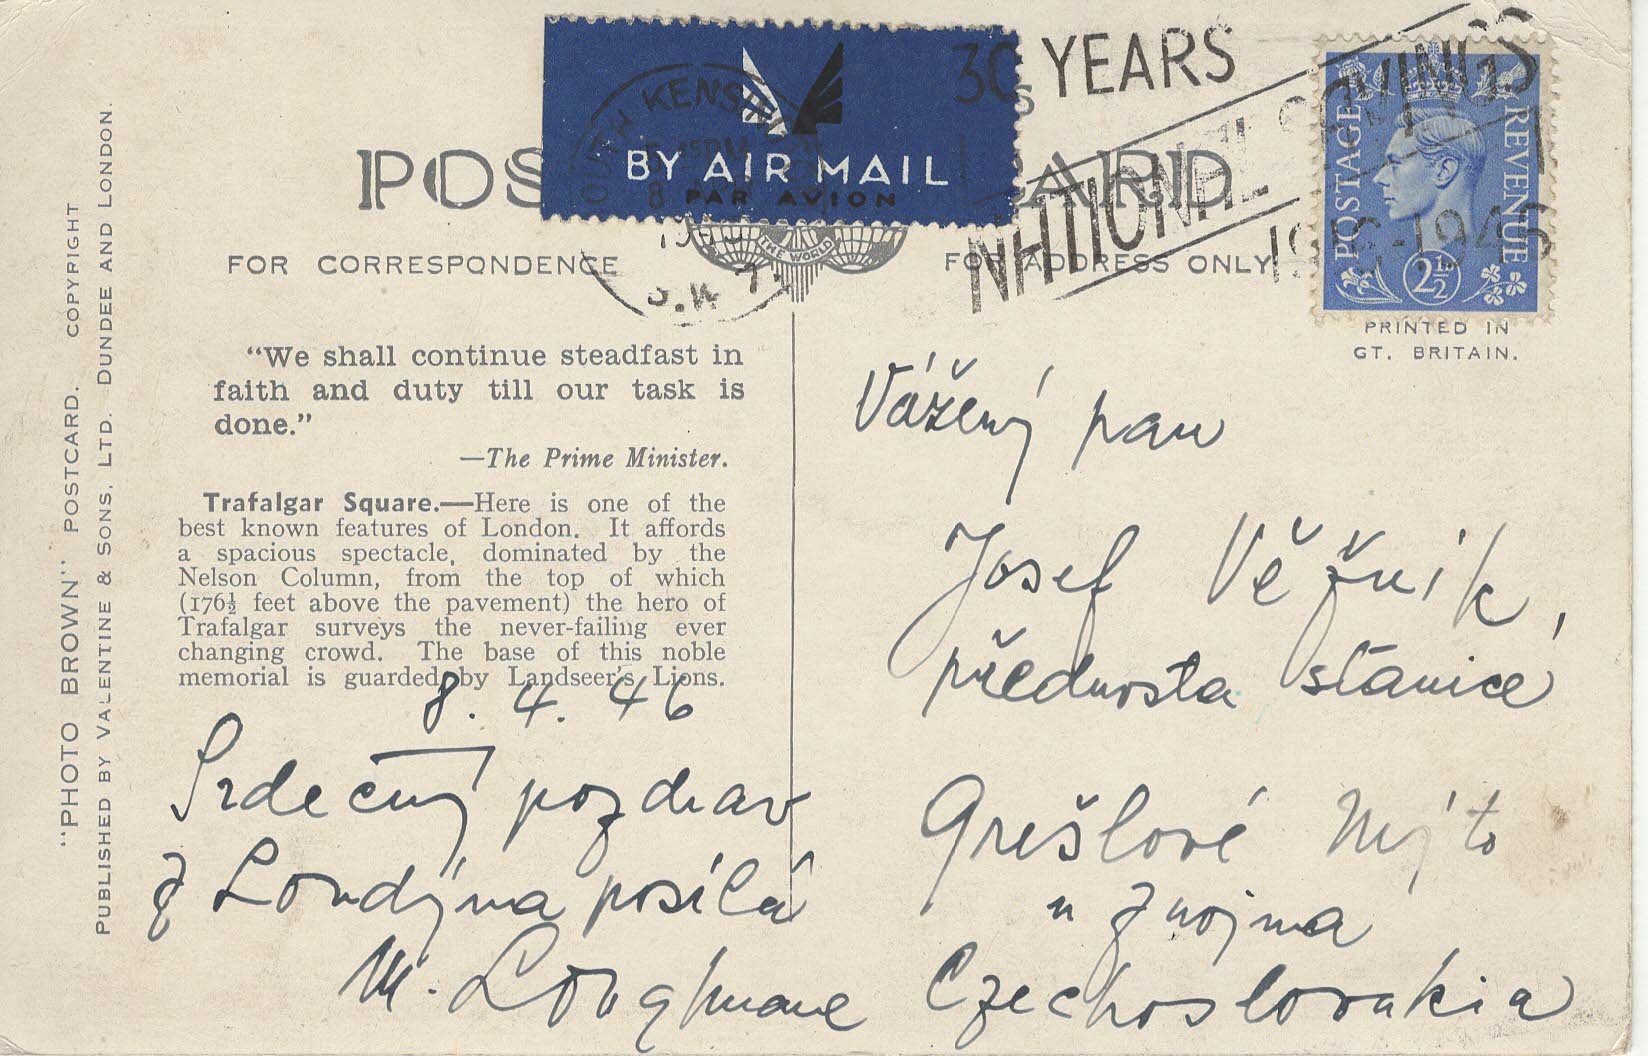 "PHOTO BROWN" POSTCARD. COPYRIGHT
PUBLISHED BY VALENTINE & SONS, LTD. DUNDEE AND LONDON.
BY AIR MAIL
PAR AVION
KENSIN
8
S.W.7.
30 YEARS
NATIONAL SAVINGS
1916-1946
POSTAGE
REVENUE
2½D
THE WORLD
POS CARD
FOR CORRESPONDENCE
FOR ADDRESS ONLY
PRINTED IN
GT. BRITAIN.
"We shall continue steadfast in
faith and duty till our task is
done."
—The Prime Minister.
Trafalgar Square.—Here is one of the
best known features of London. It affords
a spacious spectacle, dominated by the
Nelson Column, from the top of which
(176½ feet above the pavement) the hero of
Trafalgar surveys the never-failing ever
changing crowd. The base of this noble
memorial is guarded by Landseer's Lions.
8. 4. 46
Srdečný pozdrav
z Londýna posílá
M.
Vážený pan
Josef Věžník,
přednosta stanice
Grešlové Mýto
u Znojma
Czechoslovakia